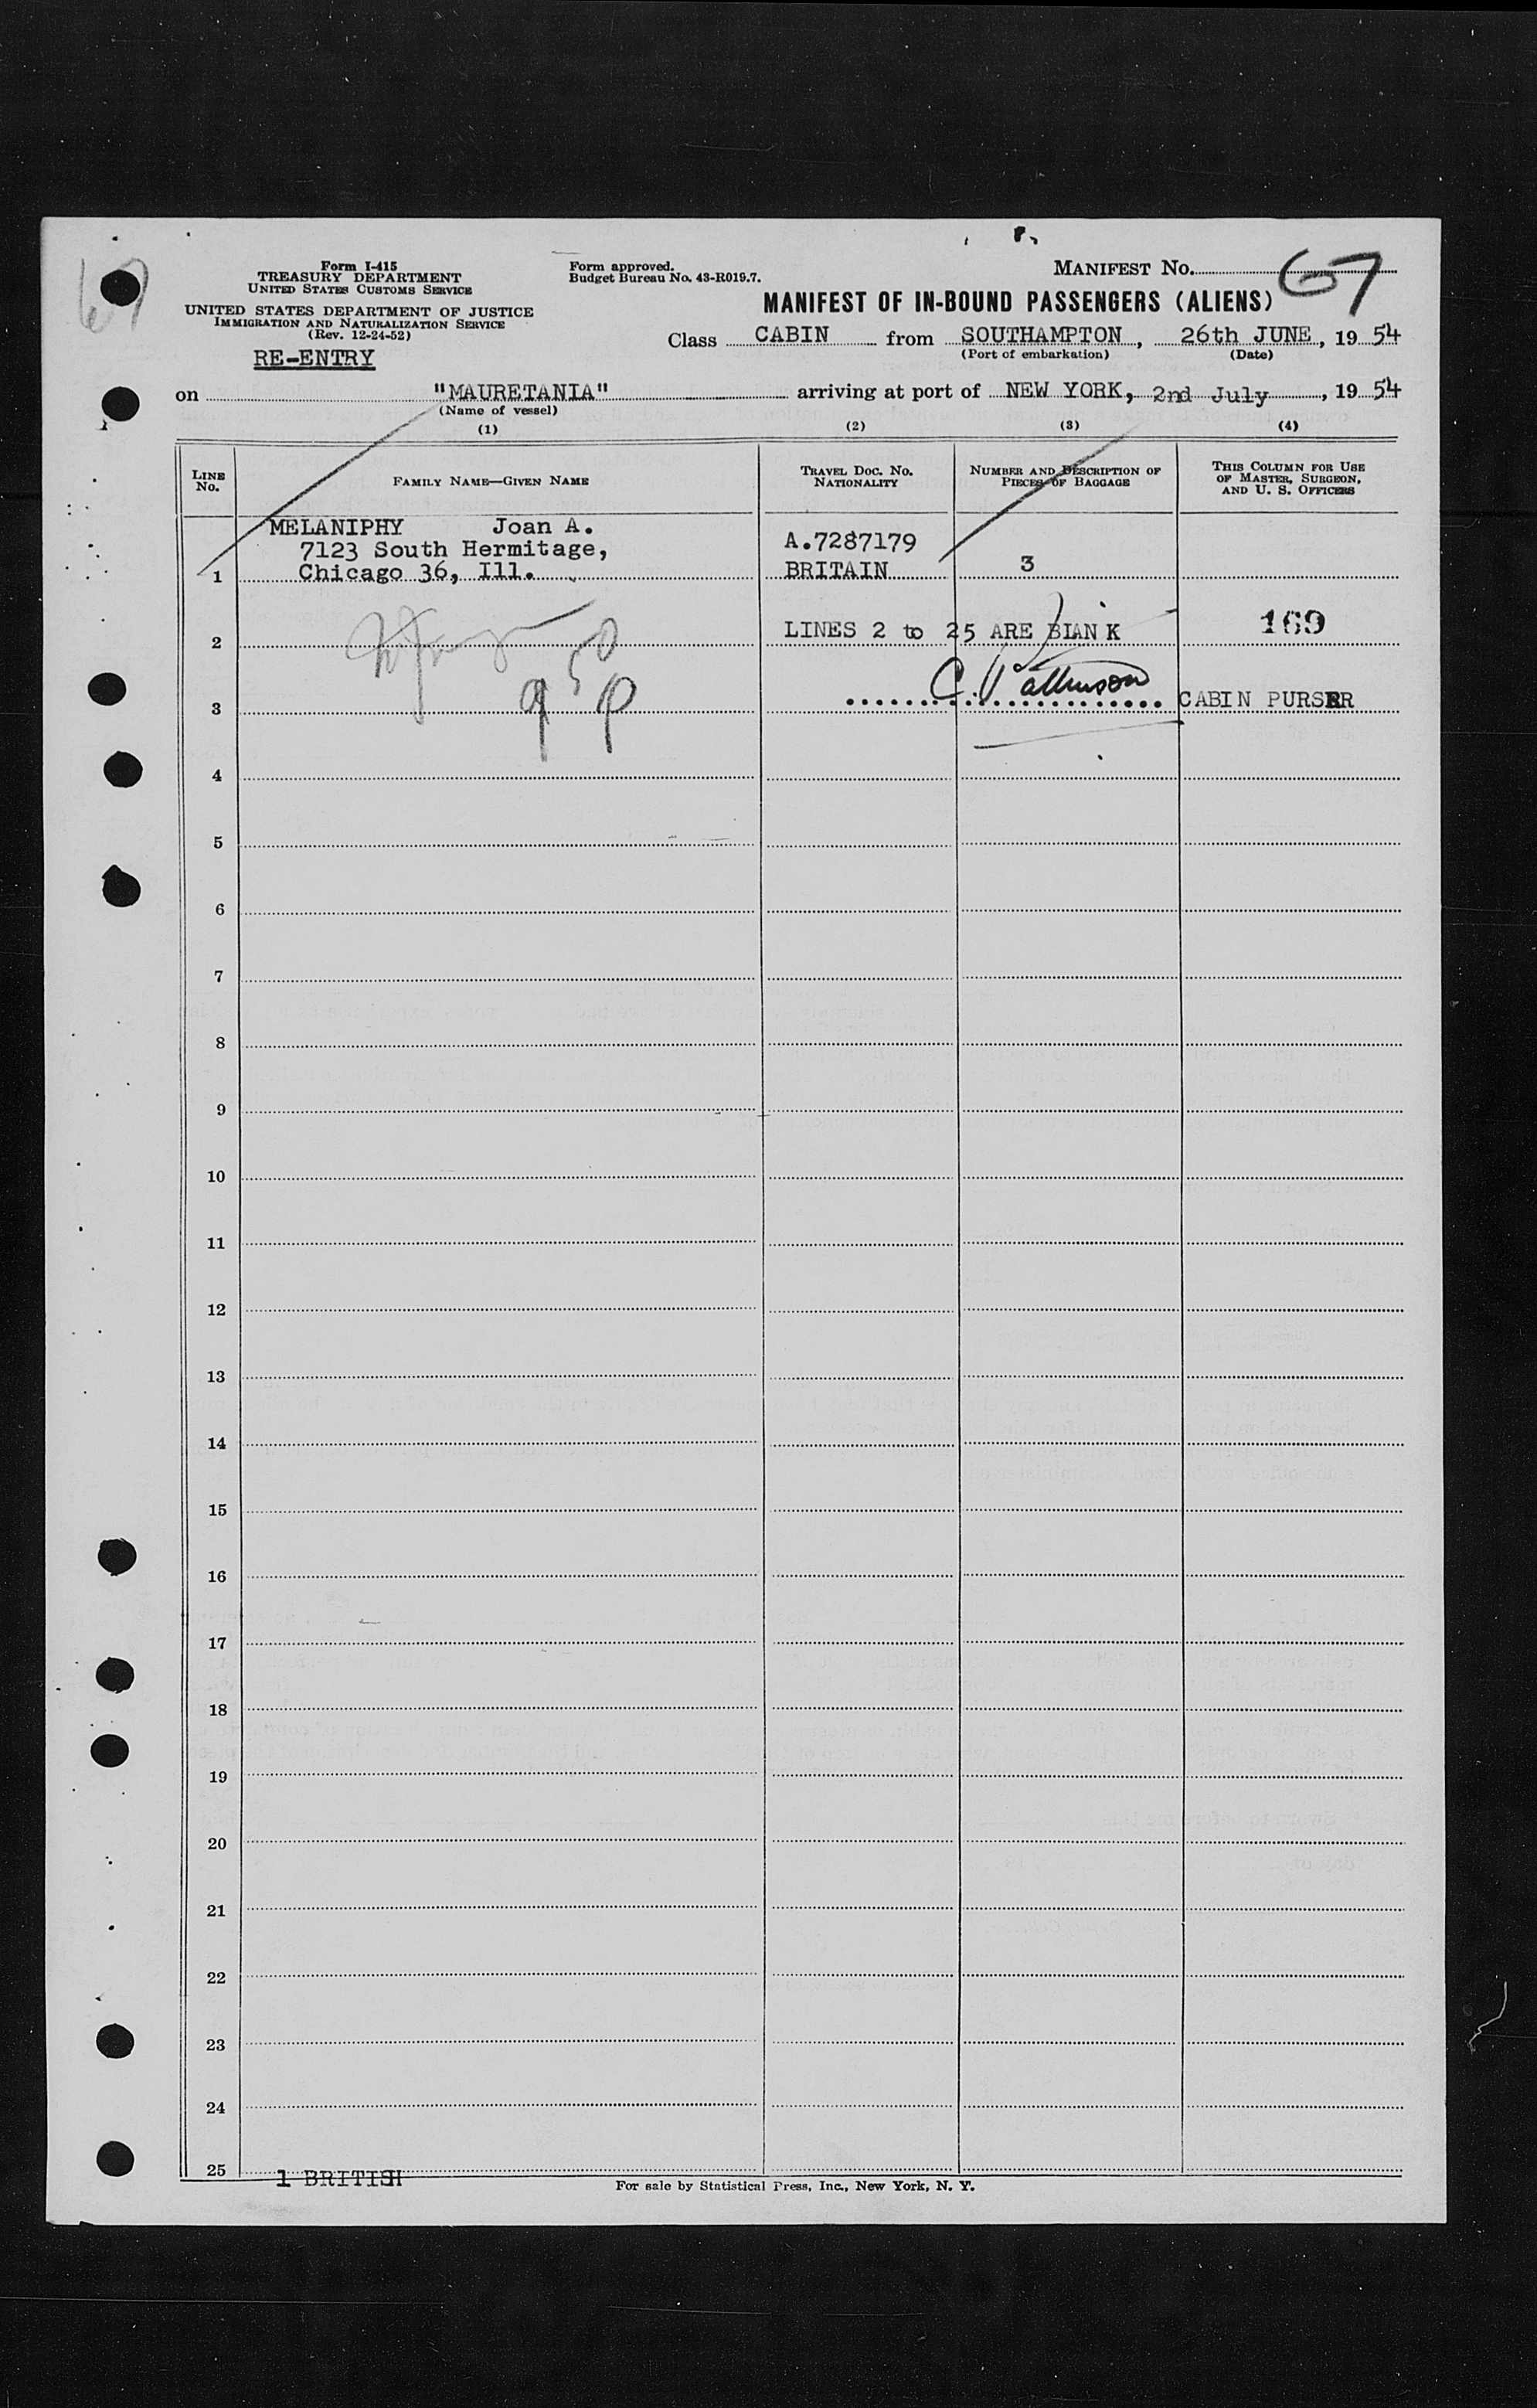 Form I-415
TREASURY DEPARTMENT
UNITED STATES CUSTOMS SERVICE
UNITED STATES DEPARTMENT OF JUSTICE
IMMIGRATION AND NATURALIZATION SERVICE
(Rev. 12-24-52)
RE-ENTRY
Form approved.
Budget Bureau No. 43-R019.7.
MANIFEST NO. 67
MANIFEST OF IN-BOUND PASSENGERS (ALIENS)
Class CABIN from SOUTHAMPTON, 26th JUNE, 1954
(Port of embarkation) (Date)
on "MAURETANIA" arriving at port of NEW YORK, 2nd July, 1954
(Name of vessel)
(1) (2) (3) (4)
LINE NO. FAMILY NAME—GIVEN NAME TRAVEL DOC. NO. NATIONALITY NUMBER AND DESCRIPTION OF PIECES OF BAGGAGE THIS COLUMN FOR USE OF MASTER, SURGEON, AND U. S. OFFICERS
MELANIPHY Joan A.
7123 South Hermitage, A.7287179
1 Chicago 36, Ill. BRITAIN 3
2 LINES 2 to 25 ARE BLANK 169
3 CABIN PURSER
4
5
6
7
8
9
10
11
12
13
14
15
16
17
18
19
20
21
22
23
24
25
1 BRITISH
For sale by Statistical Press, Inc., New York, N. Y.